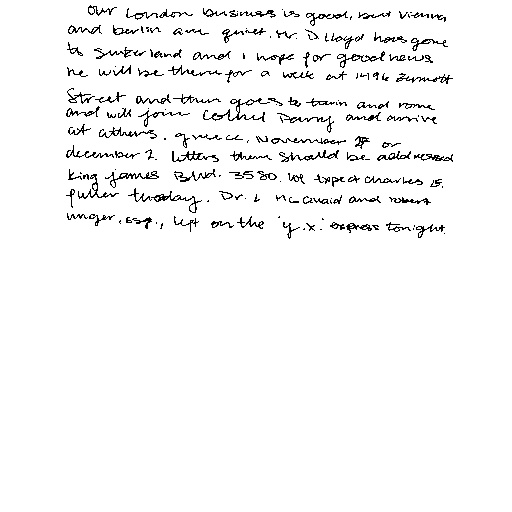 Our London business is good, but Vienna
and berlin are quiet. Mr. D Lloyd has gone
to Switzerland and I hope for good news
he will be there for a week at 1496 Zermott
Street and then goes to turin and rome
and will join Colonel Parry and arrive
at athens, greece, November 27 or
december 2. letters there should be addressed
King james Blvd. 3580. We expect charles E.
fuller tuesday. Dr. L McQuaid and robert
unger, esq., left on the 'y.x.' express tonight.